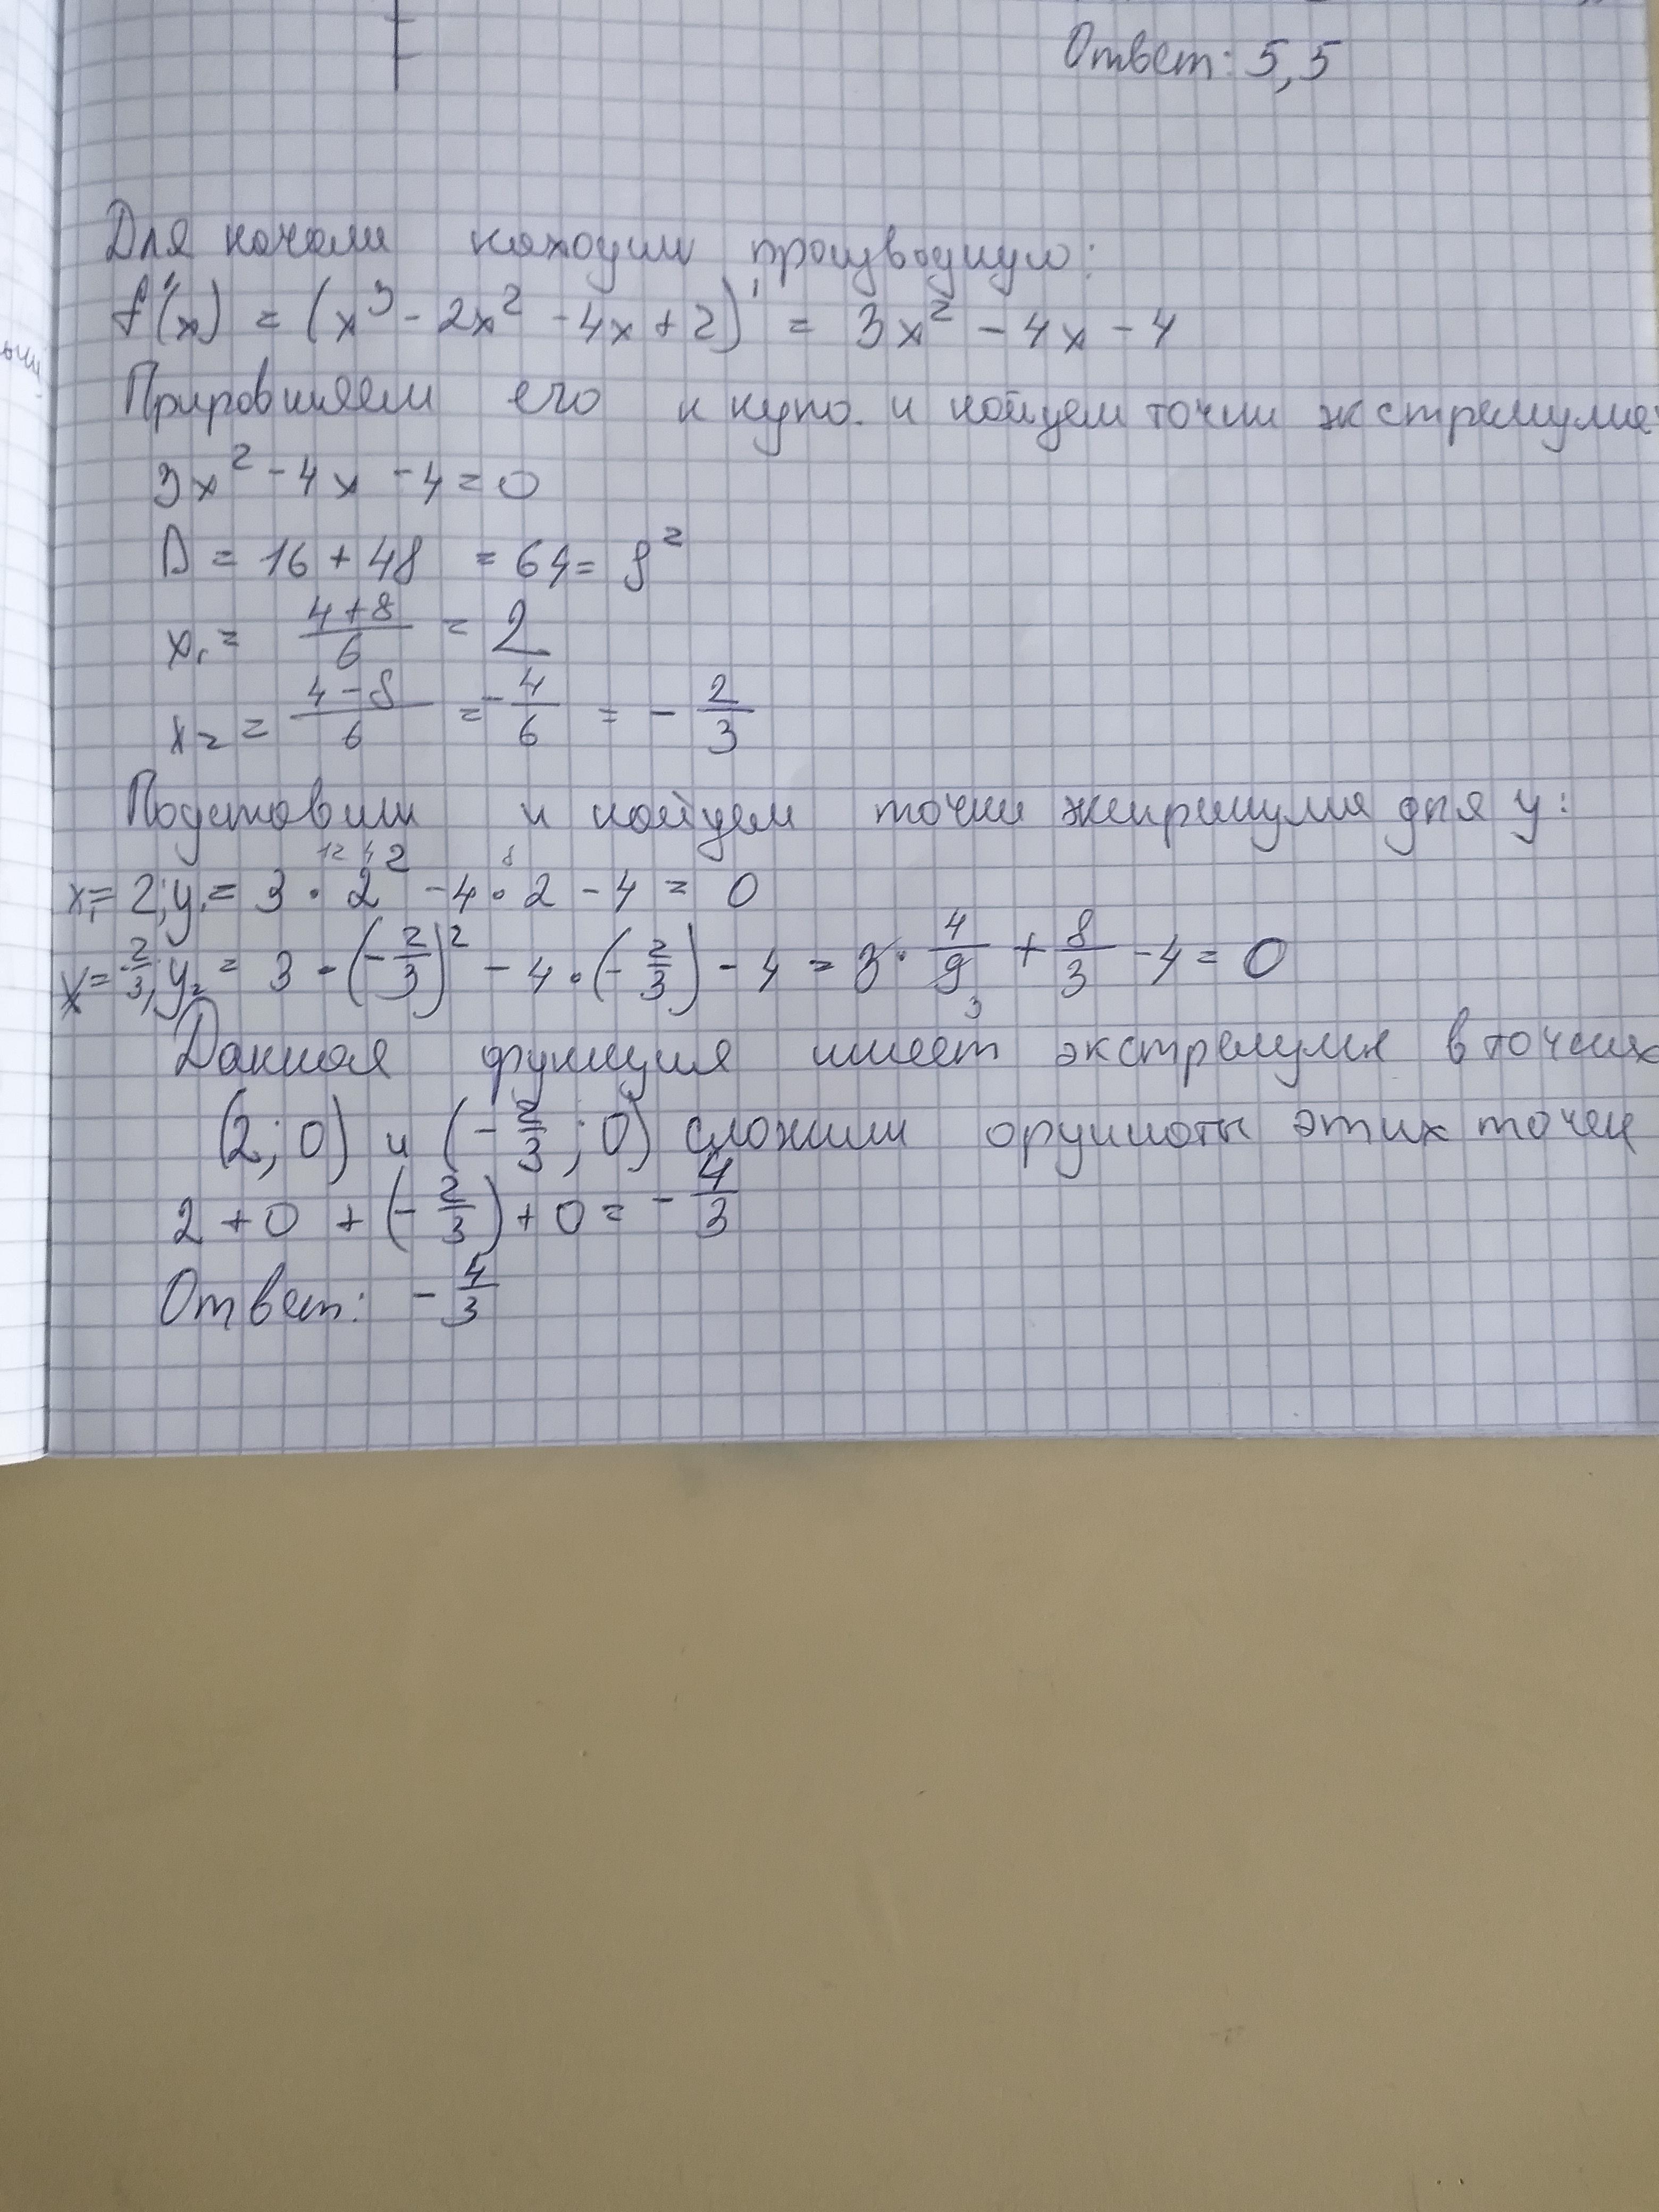 Ответ: 5,5
Для начала находим производную:
f'(x) = (x³ - 2x² - 4x + 2)' = 3x² - 4x - 4
Приравняем его к нулю. и найдем точки экстремума:
3x² - 4x - 4 = 0
D = 16 + 48 = 64 = 8²
x₁ = (4+8)/6 = 2
x₂ = (4-8)/6 = -4/6 = -2/3
Подставим и найдем точки экстремума для y:
x₁ = 2; y₁ = 3 · 2² - 4 · 2 - 4 = 0
x = -2/3; y₂ = 3 · (-2/3)² - 4 · (-2/3) - 4 = 3 · 4/9 + 8/3 - 4 = 0
Данная функция имеет экстремумы в точках
(2; 0) и (-2/3; 0) сложим этих точек
2 + 0 + (-2/3) + 0 = -4/3
Ответ: -4/3